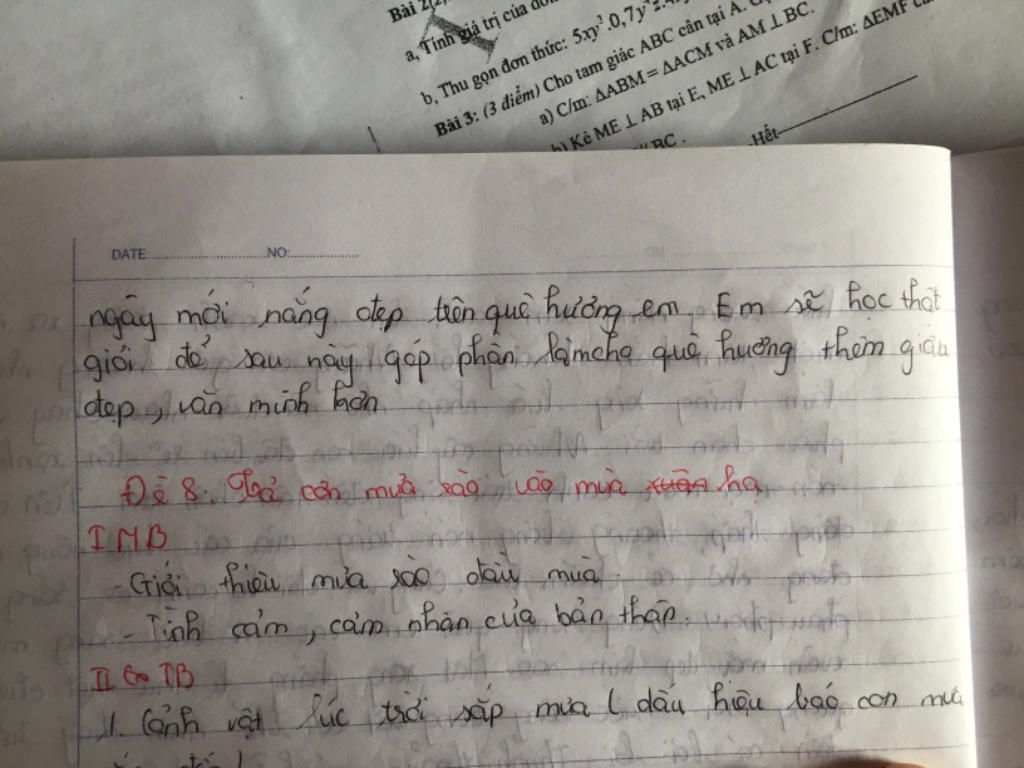 Bài 2(2,
a, Tính giá trị của đơn
b, Thu gọn đơn thức: 5xy³.0,7y
Bài 3: (3 điểm) Cho tam giác ABC cân tại A.
a) C/m: ΔABM = ΔACM và AM ⊥ BC.
b) Kẻ ME ⊥ AB tại E, ME ⊥ AC tại F. C/m: ΔEMF
// BC .
Hết
DATE: NO:
ngày mới nắng đẹp trên quê hương em. Em sẽ học thật
giỏi để sau này góp phần làm cho quê hương thêm giàu
đẹp, văn minh hơn
Đề 8. Tả cơn mưa rào vào mùa xuân hạ
I MB
- Giới thiệu mưa rào đầu mùa.
- Tình cảm, cảm nhận của bản thân.
II TB
1. Cảnh vật lúc trời sắp mưa ( dấu hiệu báo cơn mưa